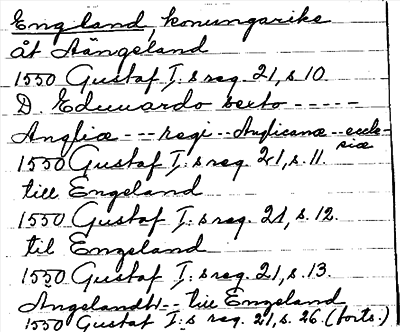 England, konungarike
åt Aängeland
1550 Gustaf I:s reg. 21, s. 10.
D. Eduuardo sexto -----
Angliæ --- regi -- Anglicanæ -- eccle-
siæ
1550 Gustaf I:s reg. 21, s. 11.
till Engeland
1550 Gustaf I:s reg. 21, s. 12.
til Engeland
1550 Gustaf I:s reg. 21, s. 13.
Angelandt -- till Engeland
1550 Gustaf I:s reg. 21, s. 26. (forts.)